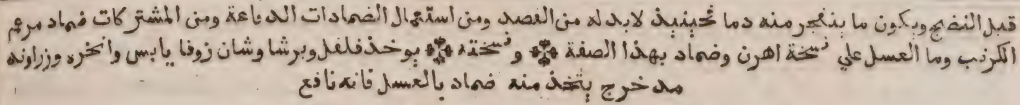 قبل النضج ويكون ما ينفجر منه دما فحينيذ لا بد له من الفصد ومن استعمال الضمادات الدباعة ومن المشتركات ضماد مرهم
الكرنب وما العسل علي نسخة اهرن وضماد بهذا الصفة ۞ ونسخته ۞ يوخذ فلفل وبرشاوشان زوفا يابس وانخره وزراوند
مدخرج يتخذ منه ضماد بالعسل فانه نافع